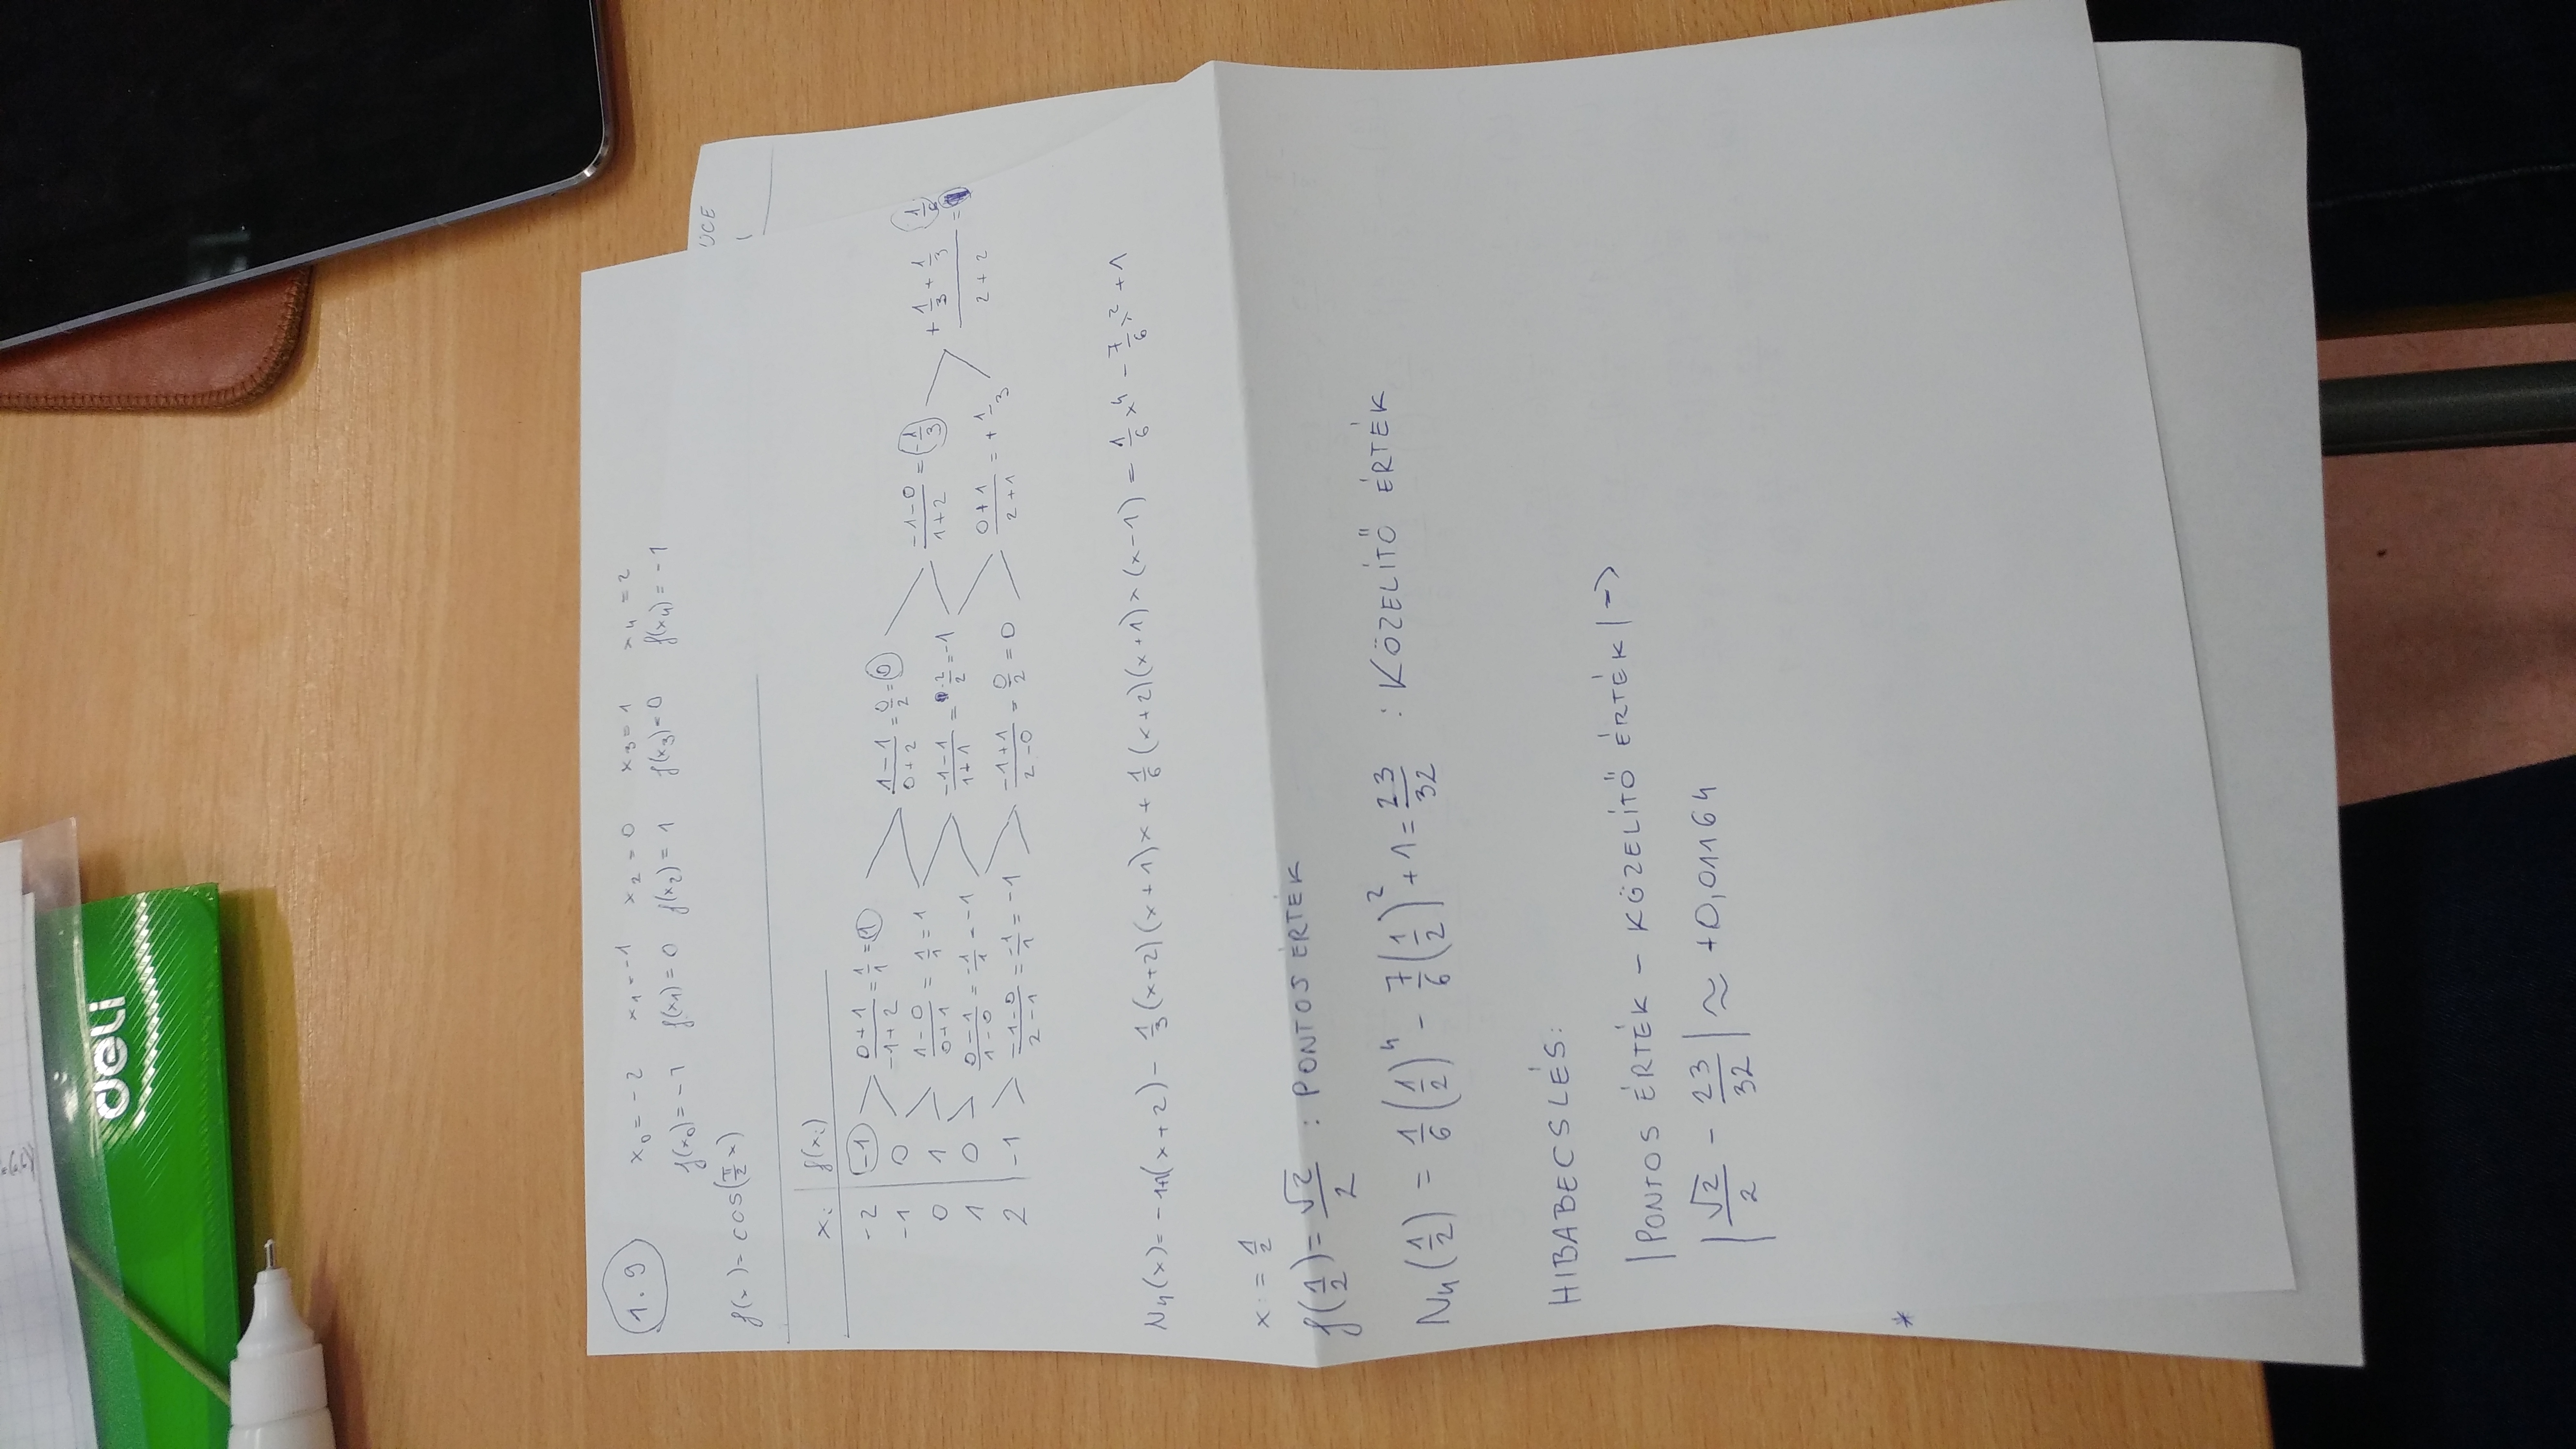 deli
1.9
x₀ = -2 x₁ = -1 x₂ = 0 x₃ = 1 x₄ = 2
f(x₀) = -1 f(x₁) = 0 f(x₂) = 1 f(x₃) = 0 f(x₄) = -1
f(x) = cos(π/2 x)
ÜCE
xᵢ f(xᵢ)
-2 -1 (0+1)/(-1+2) = 1/1 = 1 (1-1)/(0+2) = 0/2 = 0 (-1-0)/(1+2) = -1/3 (+1/3+1/3)/(2+2) = 1/6
-1 0 (1-0)/(0+1) = 1/1 = 1 (-1-1)/(1+1) = -2/2 = -1 (0+1)/(2+1) = +1/3
0 1 (0-1)/(1-0) = -1/1 = -1 (-1+1)/(2-0) = 0/2 = 0
1 0 (-1-0)/(2-1) = -1/1 = -1
2 -1
N₄(x) = -1+1(x+2) - 1/3(x+2)(x+1)x + 1/6(x+2)(x+1)x(x-1) = 1/6x⁴ - 7/6x² + 1
x = 1/2
f(1/2) = √2/2 : PONTOS ÉRTÉK
N₄(1/2) = 1/6(1/2)⁴ - 7/6(1/2)² + 1 = 23/32 : KÖZELÍTŐ ÉRTÉK
HIBABECSLÉS:
|PONTOS ÉRTÉK - KÖZELÍTŐ ÉRTÉK| ->
|√2/2 - 23/32| ≈ +0,01164
*